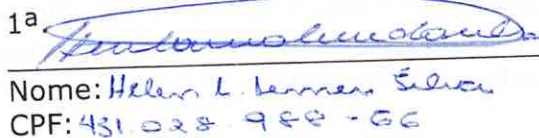 1ª
Nome: Helen L. Silva
CPF: 431.028.988-66